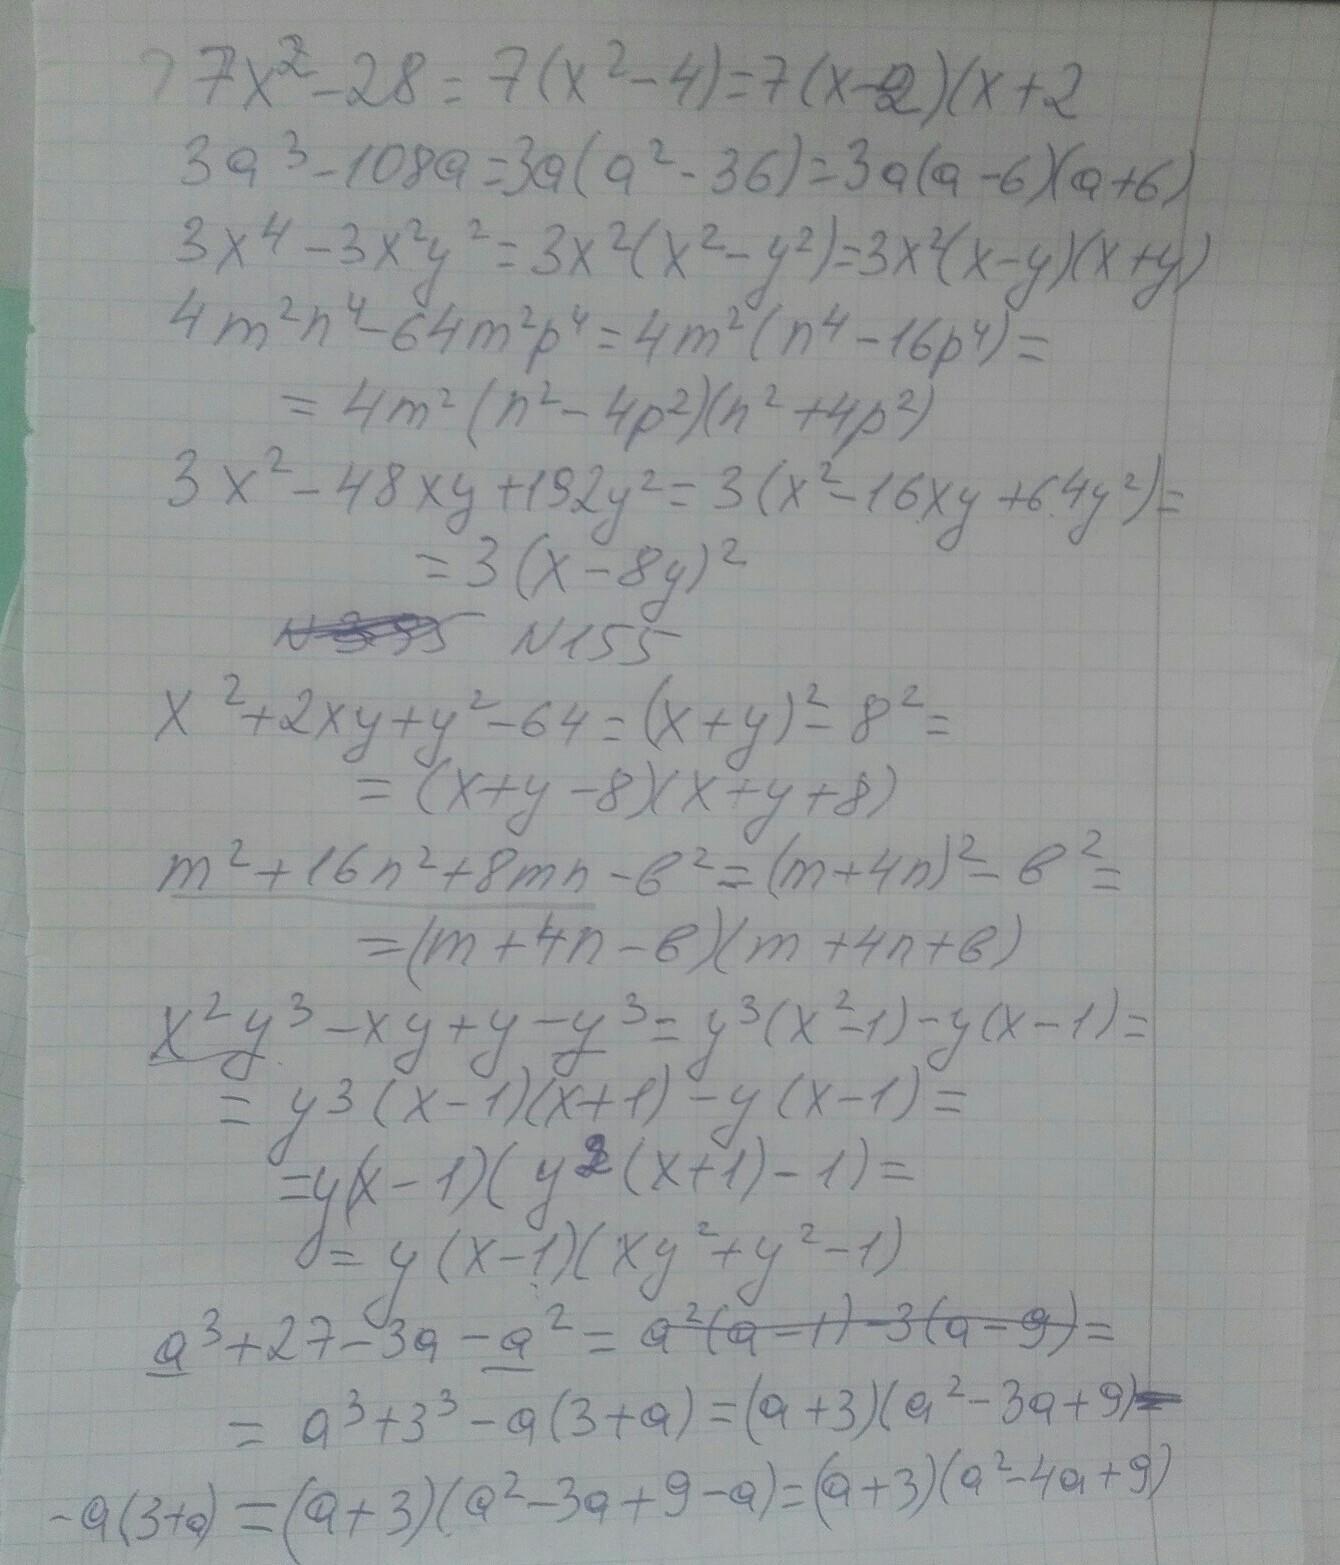 7x² - 28 = 7(x² - 4) = 7(x - 2)(x + 2
3a³ - 108a = 3a(a² - 36) = 3a(a - 6)(a + 6)
3x⁴ - 3x²y² = 3x²(x² - y²) = 3x²(x - y)(x + y)
4m²n⁴ - 64m²p⁴ = 4m²(n⁴ - 16p⁴) =
= 4m²(n² - 4p²)(n² + 4p²)
3x² - 48xy + 192y² = 3(x² - 16xy + 64y²) =
= 3(x - 8y)²
N155
x² + 2xy + y² - 64 = (x + y)² - 8² =
= (x + y - 8)(x + y + 8)
m² + 16n² + 8mn - в² = (m + 4n)² - в² =
= (m + 4n - в)(m + 4n + в)
x²y³ - xy + y - y³ = y³(x² - 1) - y(x - 1) =
= y³(x - 1)(x + 1) - y(x - 1) =
= y(x - 1)(y²(x + 1) - 1) =
= y(x - 1)(xy² + y² - 1)
a³ + 27 - 3a - a² = a²(a - 1) - 3(a - 9) =
= a³ + 3³ - a(3 + a) = (a + 3)(a² - 3a + 9) -
- a(3 + a) = (a + 3)(a² - 3a + 9 - a) = (a + 3)(a² - 4a + 9)